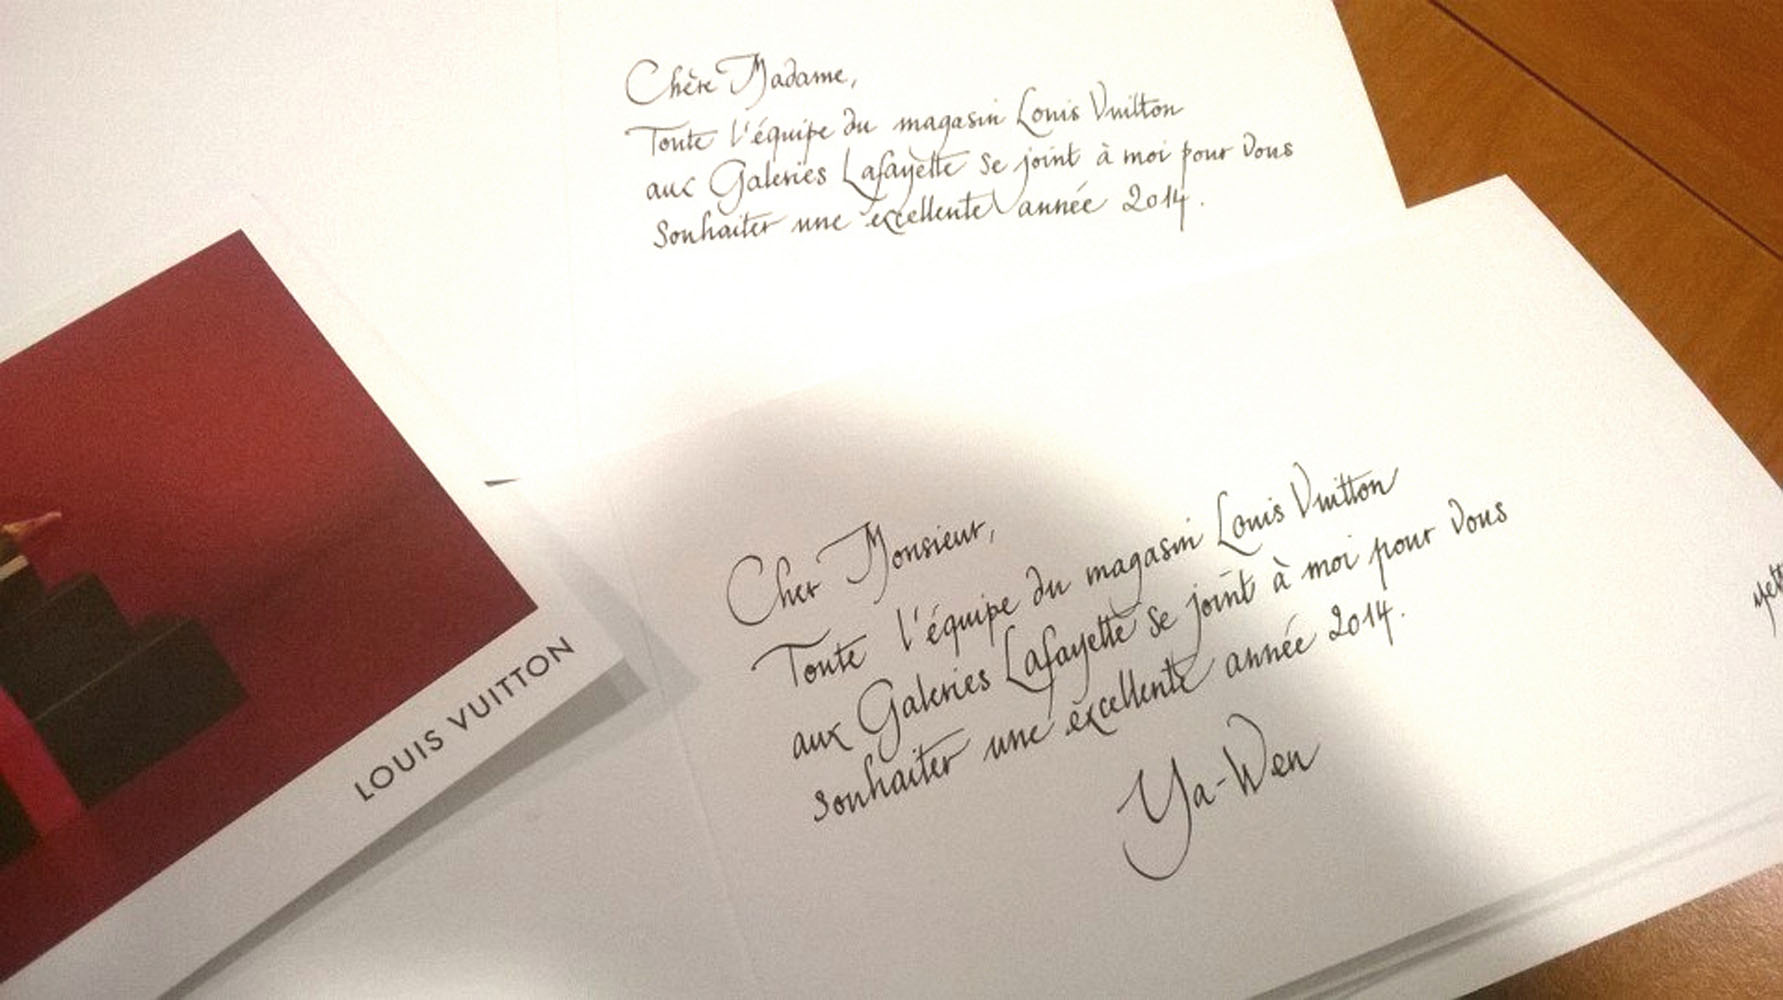 Chère Madame,
Toute l'équipe du magasin Louis Vuitton
aux Galeries Lafayette se joint à moi pour vous
souhaiter une excellente année 2014.
Cher Monsieur,
Toute l'équipe du magasin Louis Vuitton
aux Galeries Lafayette se joint à moi pour vous
souhaiter une excellente année 2014.
Ya-Wen
LOUIS VUITTON